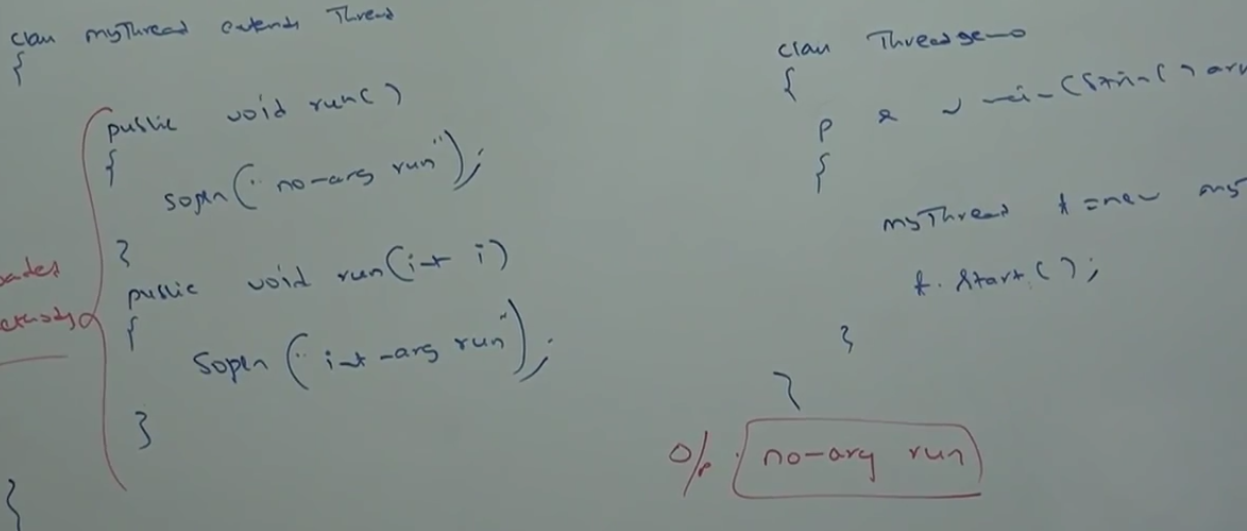 class myThread extends Thread
{
public void run()
{
sopln("no-arg run");
}
public void run(int i)
{
sopln("int-arg run");
}
}
class ThreadDemo
{
p s v main(String[] arg
{
myThread t = new my
t.start();
}
}
o/p: no-arg run